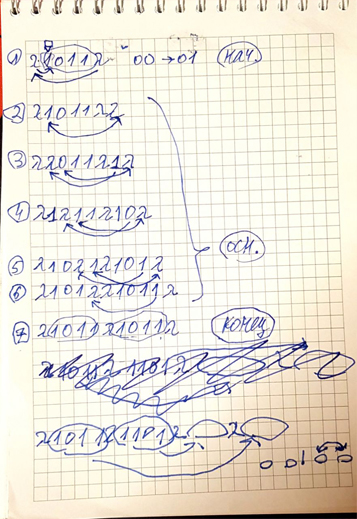 ① 210112 00→01 нач.
② 2101122
③ 22011212
④ 212112102
⑤ 2102121012 осн.
⑥ 21012210112
⑦ 210112210112 конец
21011211012 2
0 0 1 0 0